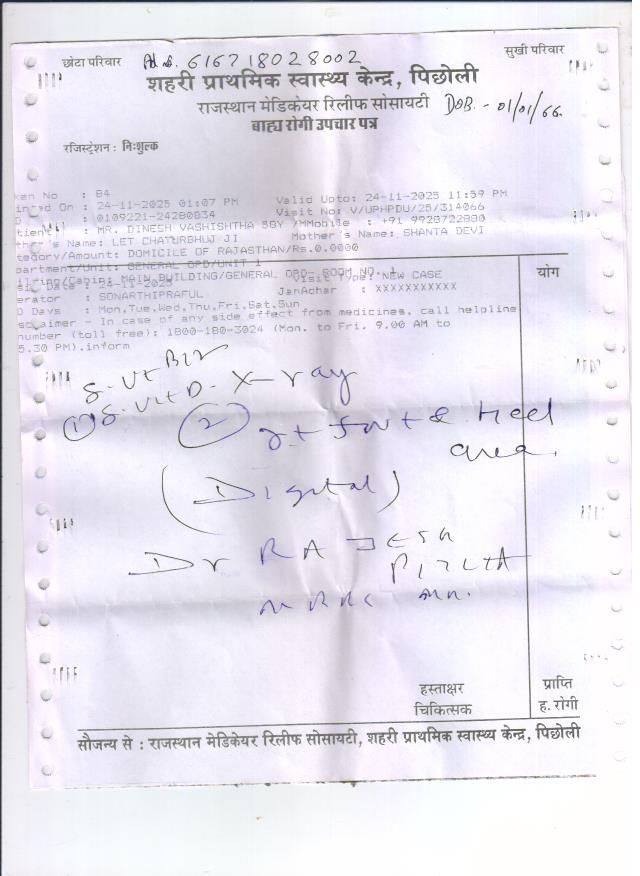 छोटा परिवार
616718028002
सुखी परिवार
शहरी प्राथमिक स्वास्थ्य केन्द्र, पिछोली
राजस्थान मेडिकेयर रिलीफ सोसायटी DOB. - 01/01/66.
बाह्य रोगी उपचार पत्र
रजिस्ट्रेशन : निःशुल्क
ken No : 84
inted On : 24-11-2025 01:07 PM Valid Upto: 24-11-2025 11:59 PM
D : 0109221-24280834 Visit No: V/UPHPDU/25/314066
tient : MR. DINESH VASHISHTHA 59Y /MMobile : +91 9928722880
ther's Name: LET CHATURBHUJ JI Mother's Name: SHANTA DEVI
tegory/Amount: DOMICILE OF RAJASTHAN/Rs.0.0000
partment/Unit: GENERAL OPD/UNIT 1
MAIN BUILDING/GENERAL OPD- ROOM NO. 1
Visit Type: NEW CASE
erator : SONARTHIPRAFUL JanAchar : XXXXXXXXXXX
D Days : Mon,Tue,Wed,Thu,Fri,Sat,Sun
sclaimer - In case of any side effect from medicines, call helpline
number (toll free): 1800-180-3024 (Mon. to Fri. 9.00 AM to
5.30 PM).inform
योग
S. Vit B12
① S. Vit D.
② X-ray
& Heel
area
(Digital)
Dr RAJESH
हस्ताक्षर
चिकित्सक
प्राप्ति
ह. रोगी
सौजन्य से : राजस्थान मेडिकेयर रिलीफ सोसायटी, शहरी प्राथमिक स्वास्थ्य केन्द्र, पिछोली